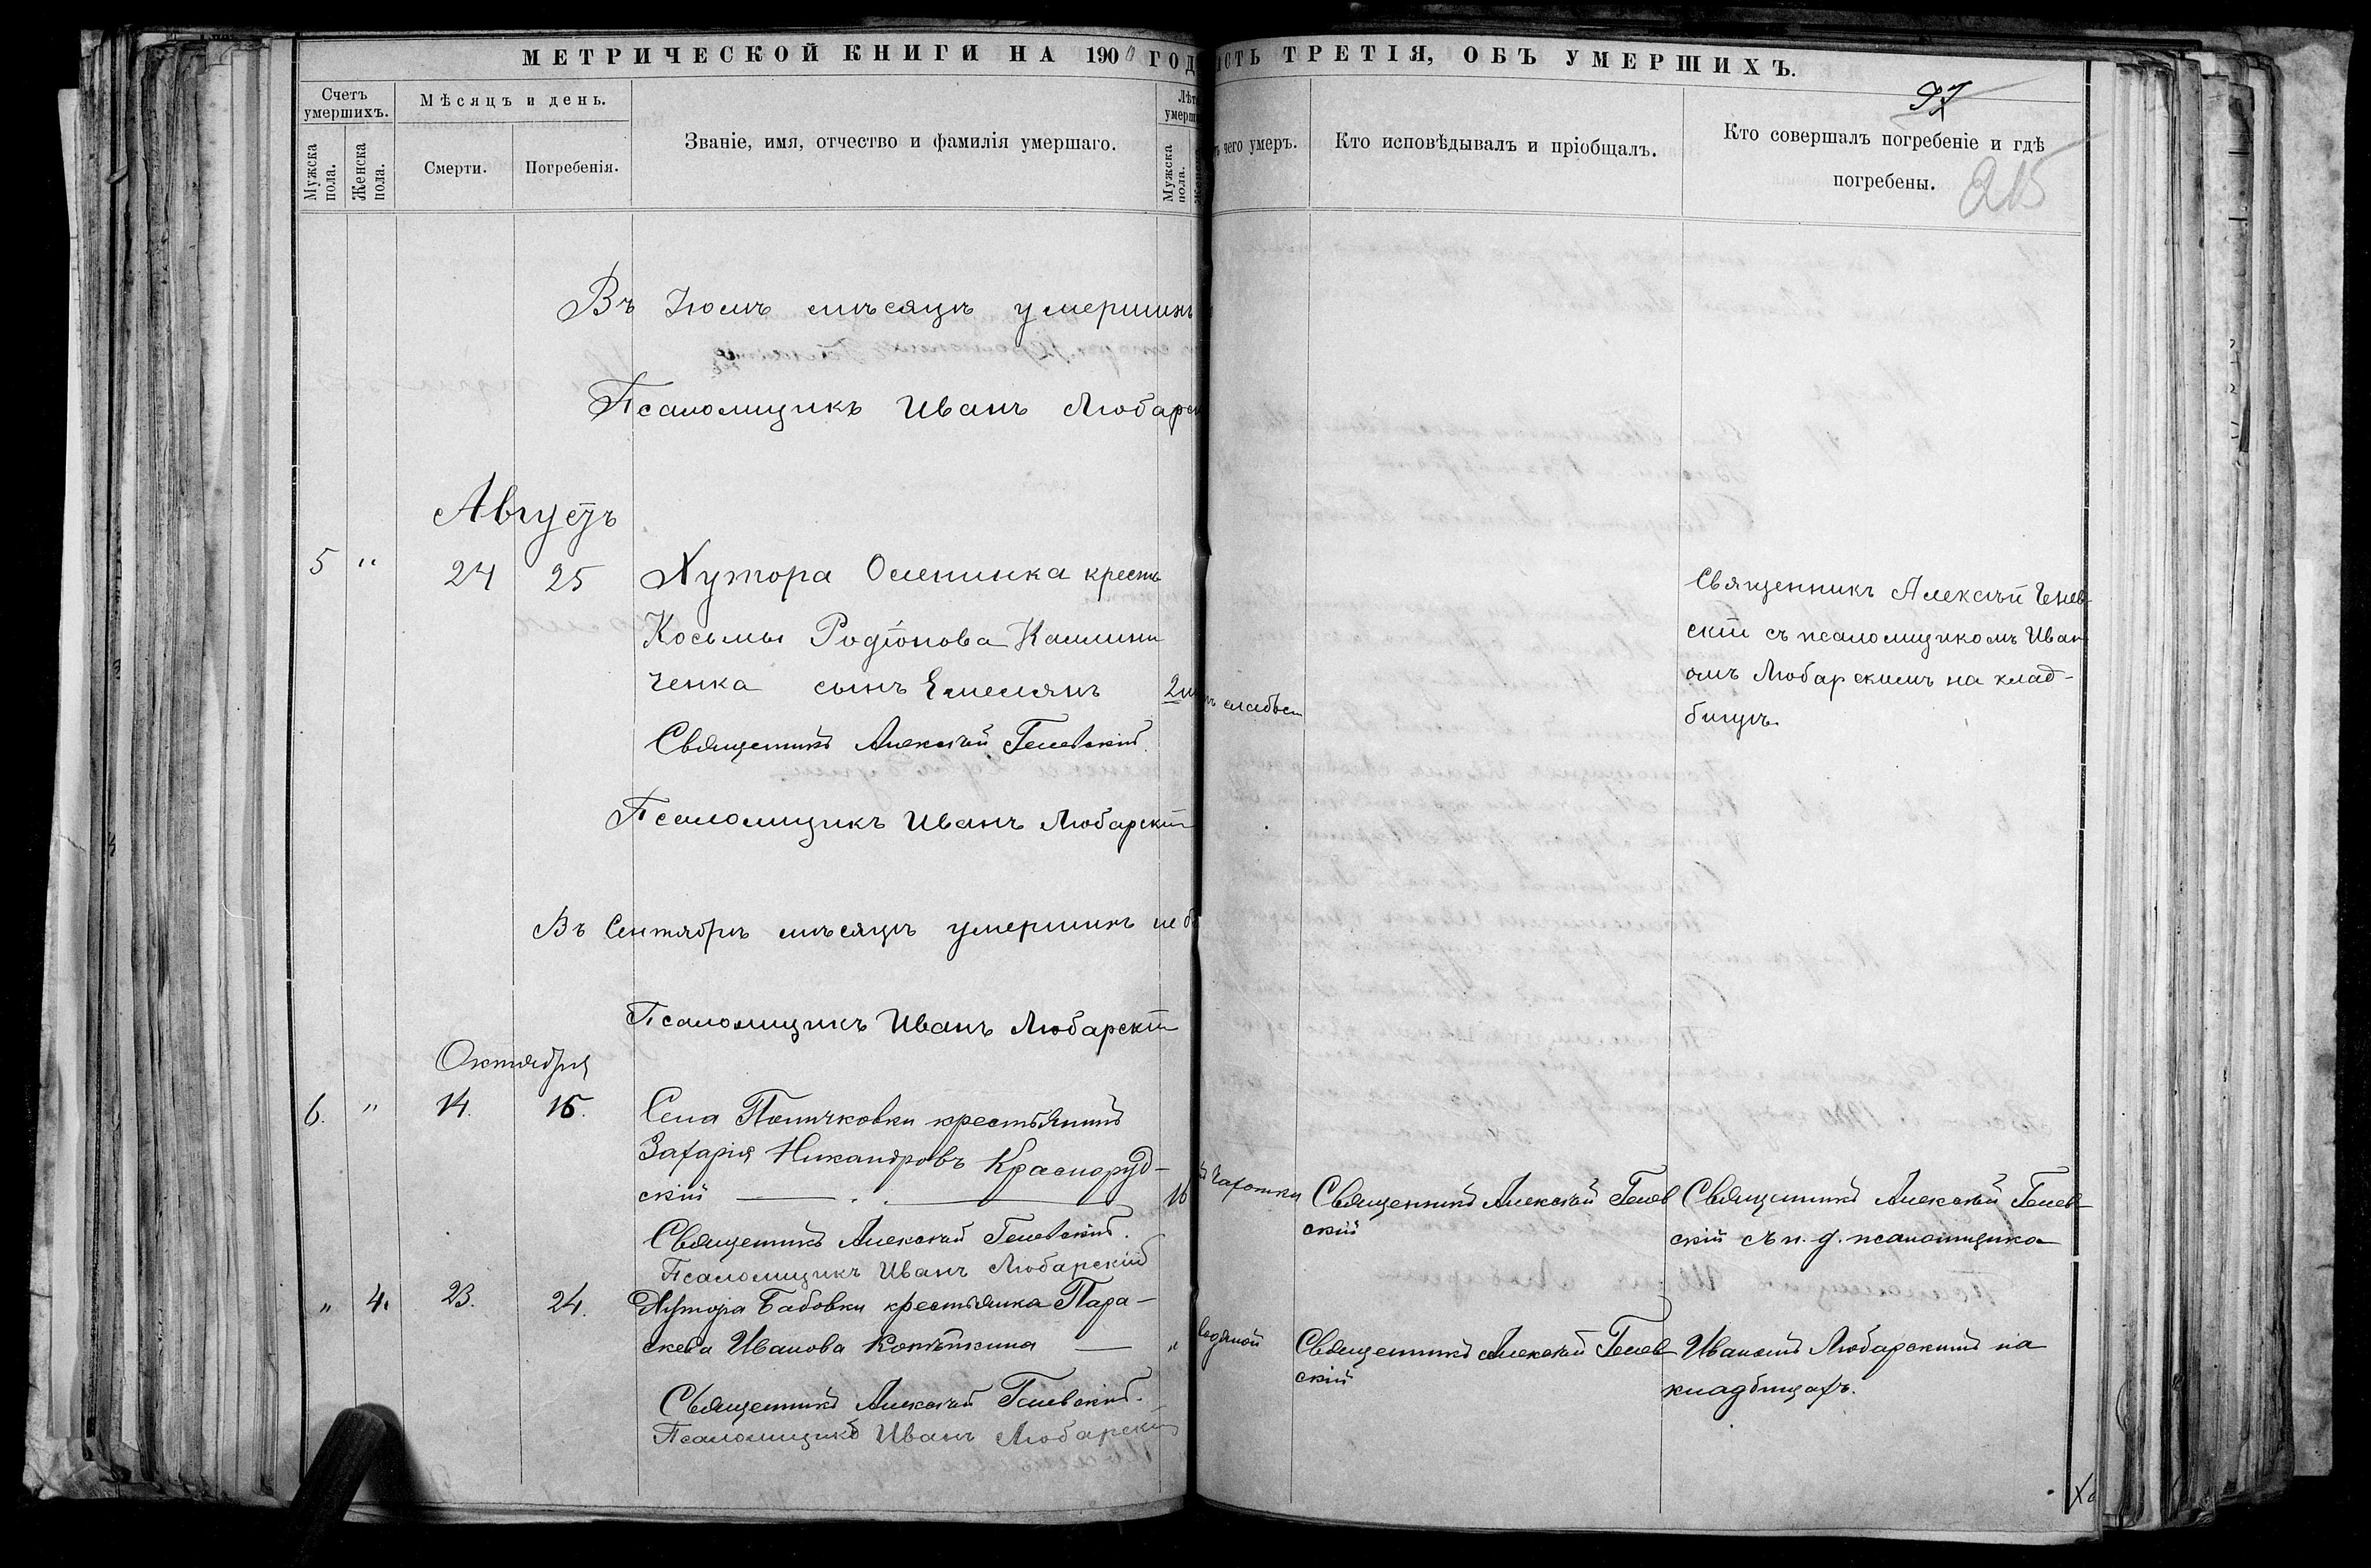 МЕТРИЧЕСКОЙ КНИГИ НА 1900 ГОД
СТЬ ТРЕТІЯ, ОБЪ УМЕРШИХЪ.
Счетъ умершихъ.
Мѣсяцъ и день.
Мужска пола.
Женска пола.
Смерти.
Погребенія.
Званіе, имя, отчество и фамилія умершаго.
Мужска пола.
чего умеръ.
Кто исповѣдывалъ и пріобщалъ.
97
Кто совершалъ погребеніе и гдѣ
погребены.
215
Въ Іюлѣ мѣсяцѣ умершихъ
Псаломщикъ Иванъ Любарск
Августъ
5 " 24 25 Хутора Оленинка кресть
Косьмы Родіонова Калини
ченка сынъ Емелянъ 2
слабост
Священникъ Алексѣй Гелевскій.
Псаломщикъ Иванъ Любарскій
Священникъ Алексѣй Гелев
скій съ псаломщикомъ Иван
омъ Любарскимъ на клад-
бищѣ.
Въ Сентябрѣ мѣсяцѣ умершихъ не б
Псаломщикъ Иванъ Любарскій
Октября
6. " 14. 15. Села Поличковки крестьянинъ
Захарія Никандровъ Красноруд-
скій 16
чахотки
Священникъ Алексѣй Гелев
скій
Священникъ Алексѣй Гелев-
скій съ и. д. псаломщика
Священникъ Алексѣй Гелевскій.
Псаломщикъ Иванъ Любарскій
" 4. 23. 24. Хутора Бабовки крестьянка Пара-
скева Иванова Копыткина "
водяной
Священникъ Алексѣй Гелев
скій
Иваномъ Любарскимъ на
кладбищахъ.
Священникъ Алексѣй Гелевскій.
Псаломщикъ Иванъ Любарскій